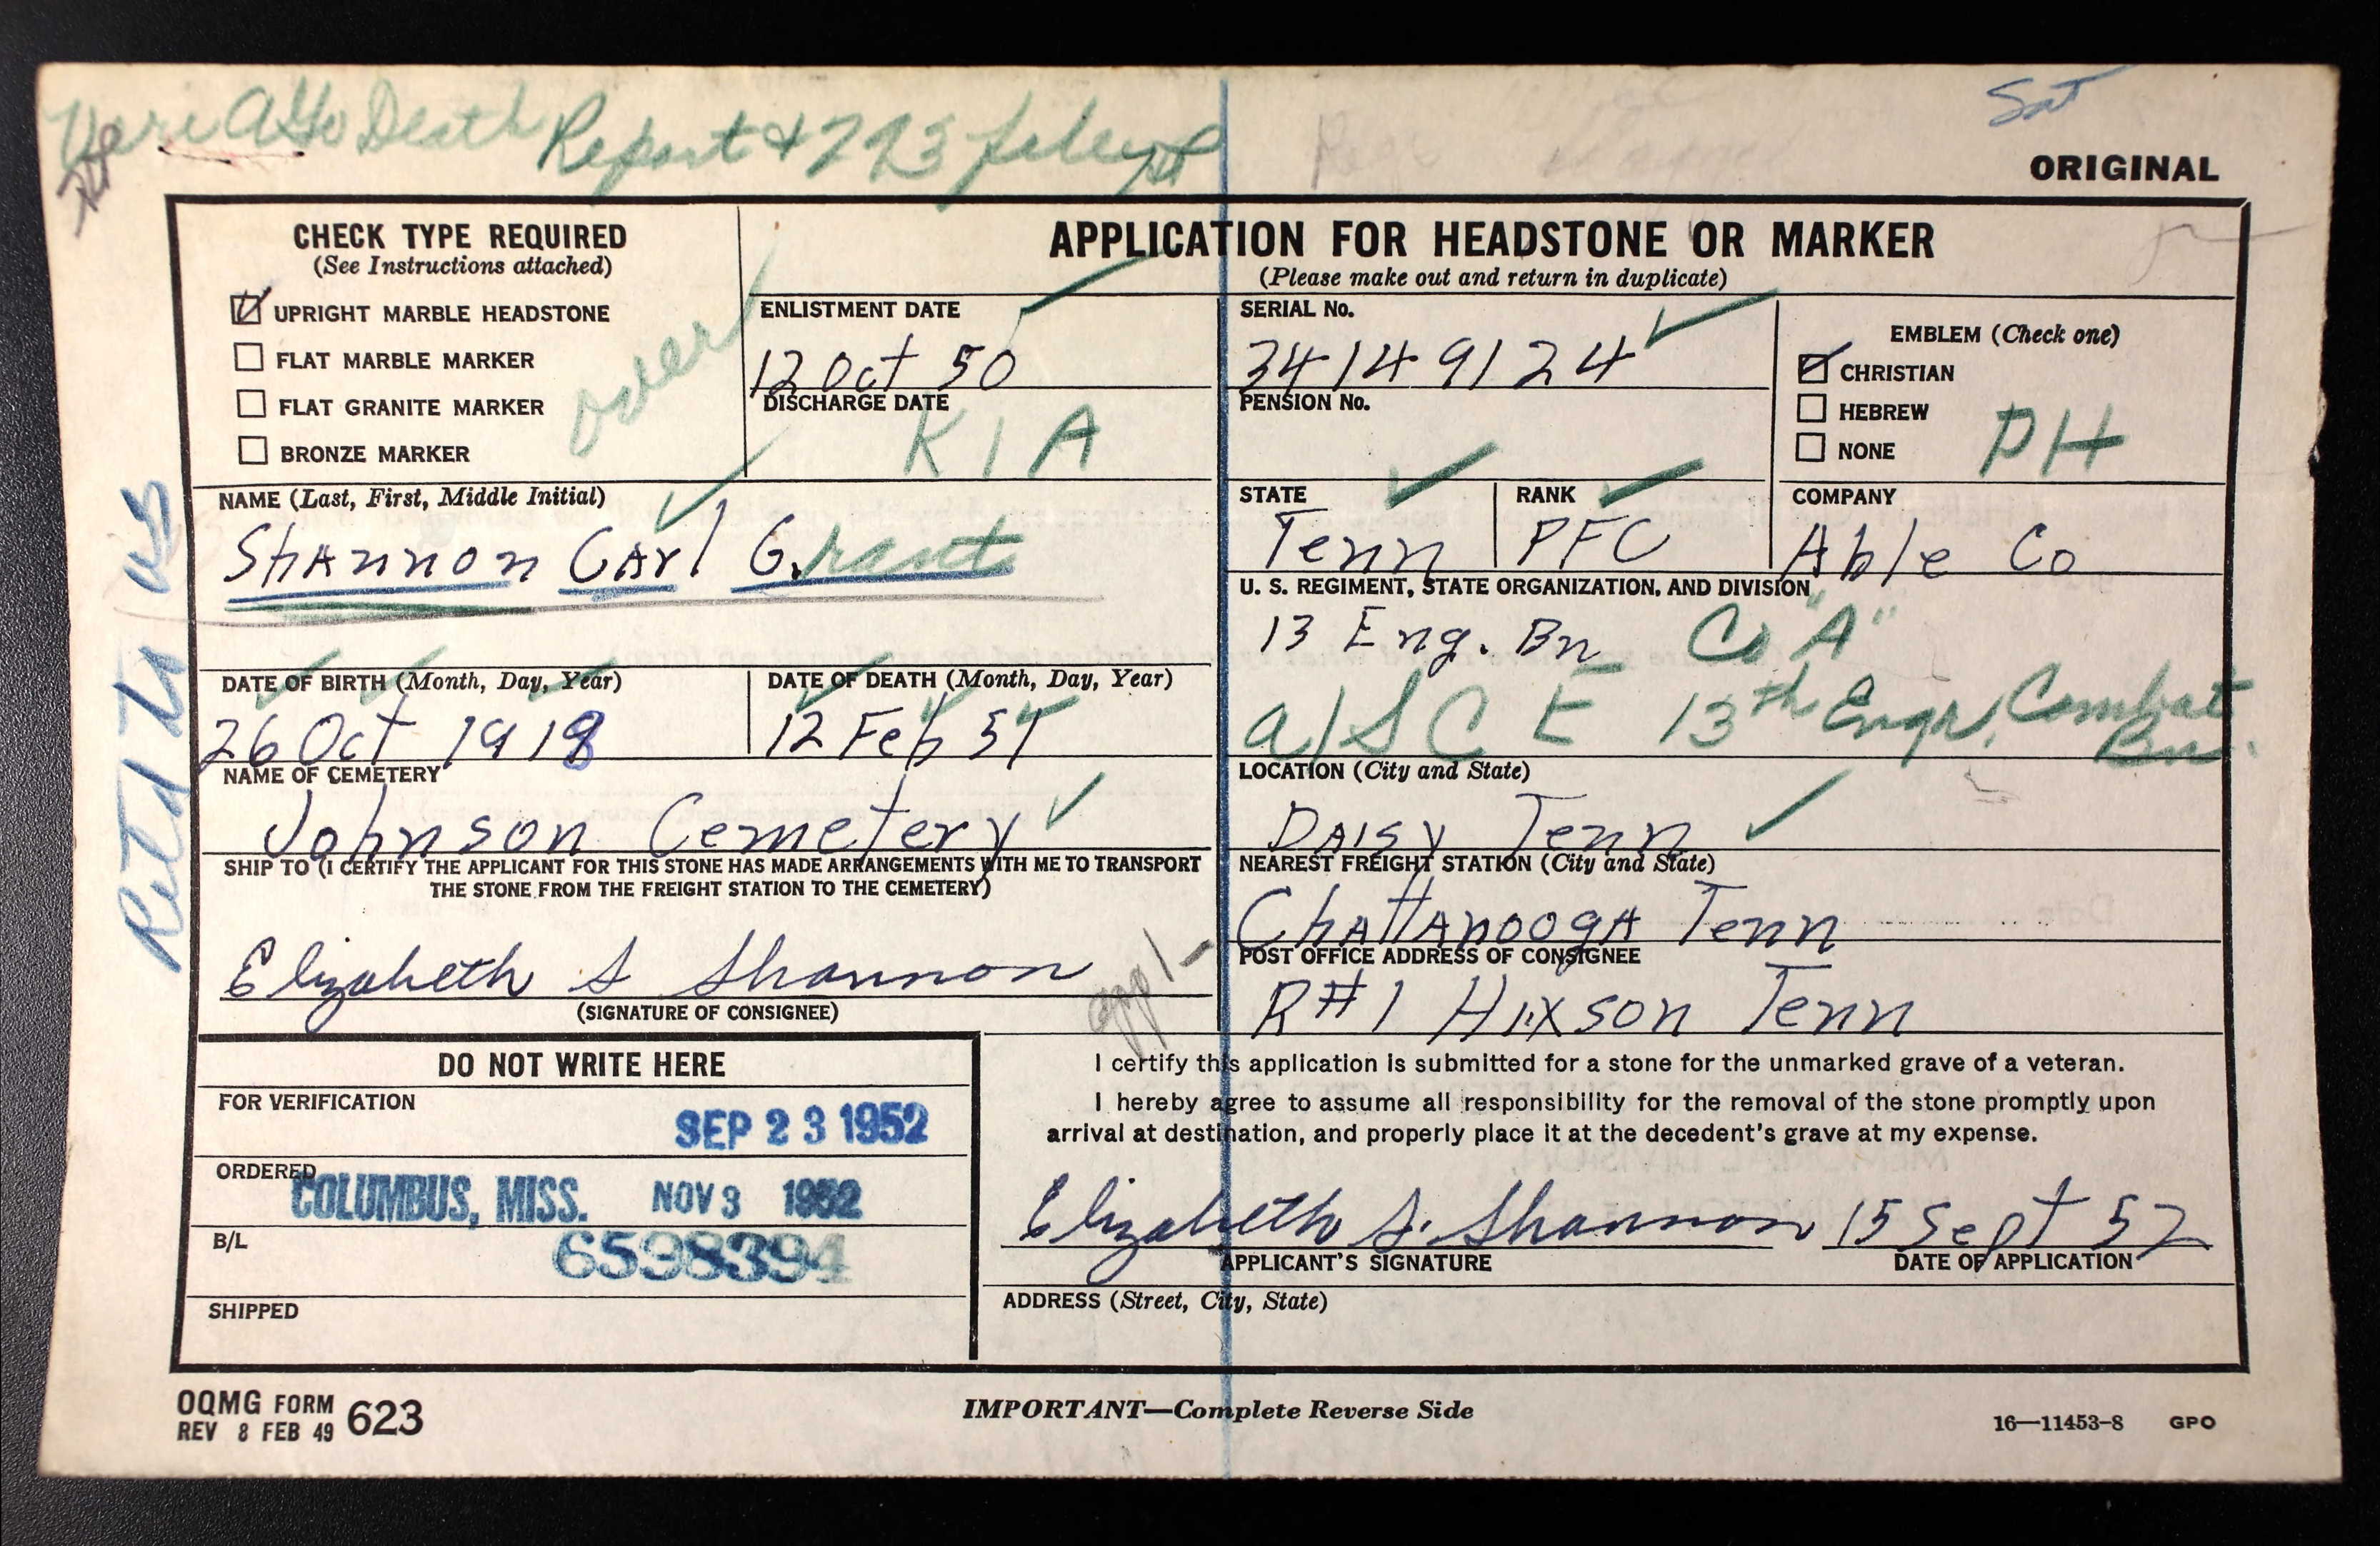 Veri AGO Death Report & 293 file
Sat
ORIGINAL
CHECK TYPE REQUIRED
(See Instructions attached)
UPRIGHT MARBLE HEADSTONE
FLAT MARBLE MARKER
FLAT GRANITE MARKER
BRONZE MARKER
over
APPLICATION FOR HEADSTONE OR MARKER
(Please make out and return in duplicate)
ENLISTMENT DATE
12 Oct 50
DISCHARGE DATE
KIA
SERIAL No.
34149124
PENSION No.
EMBLEM (Check one)
CHRISTIAN
HEBREW
NONE
PH
NAME (Last, First, Middle Initial)
Shannon Carl G.rant
STATE
Tenn
RANK
PFC
COMPANY
Able Co
U. S. REGIMENT, STATE ORGANIZATION, AND DIVISION
13 Eng. Bn Co "A"
a/S C E 13th Engr. Combat Bn.
DATE OF BIRTH (Month, Day, Year)
26 Oct 1918
DATE OF DEATH (Month, Day, Year)
12 Feb 51
NAME OF CEMETERY
Johnson Cemetery
LOCATION (City and State)
Daisy Tenn
SHIP TO (I CERTIFY THE APPLICANT FOR THIS STONE HAS MADE ARRANGEMENTS WITH ME TO TRANSPORT
THE STONE FROM THE FREIGHT STATION TO THE CEMETERY)
Elizabeth S Shannon
(SIGNATURE OF CONSIGNEE)
appl-
NEAREST FREIGHT STATION (City and State)
Chattanooga Tenn
POST OFFICE ADDRESS OF CONSIGNEE
R#1 Hixson Tenn
DO NOT WRITE HERE
FOR VERIFICATION
SEP 23 1952
ORDERED
COLUMBUS, MISS. NOV 3 1952
B/L
6598394
SHIPPED
I certify this application is submitted for a stone for the unmarked grave of a veteran.
I hereby agree to assume all responsibility for the removal of the stone promptly upon
arrival at destination, and properly place it at the decedent's grave at my expense.
Elizabeth S. Shannon 15 Sept 52
APPLICANT'S SIGNATURE
DATE OF APPLICATION
ADDRESS (Street, City, State)
OQMG FORM 623
REV 8 FEB 49
IMPORTANT—Complete Reverse Side
16—11453-8 GPO